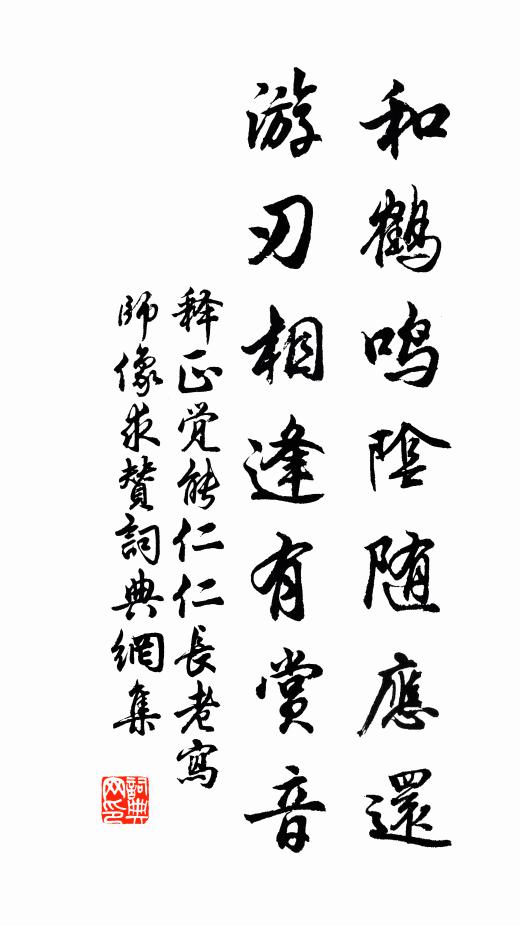 和鶴鳴陰随應還
游刃相逢有赏音
释正觉能仁仁長老寫
師像求赞詞典網集
詞典
网印